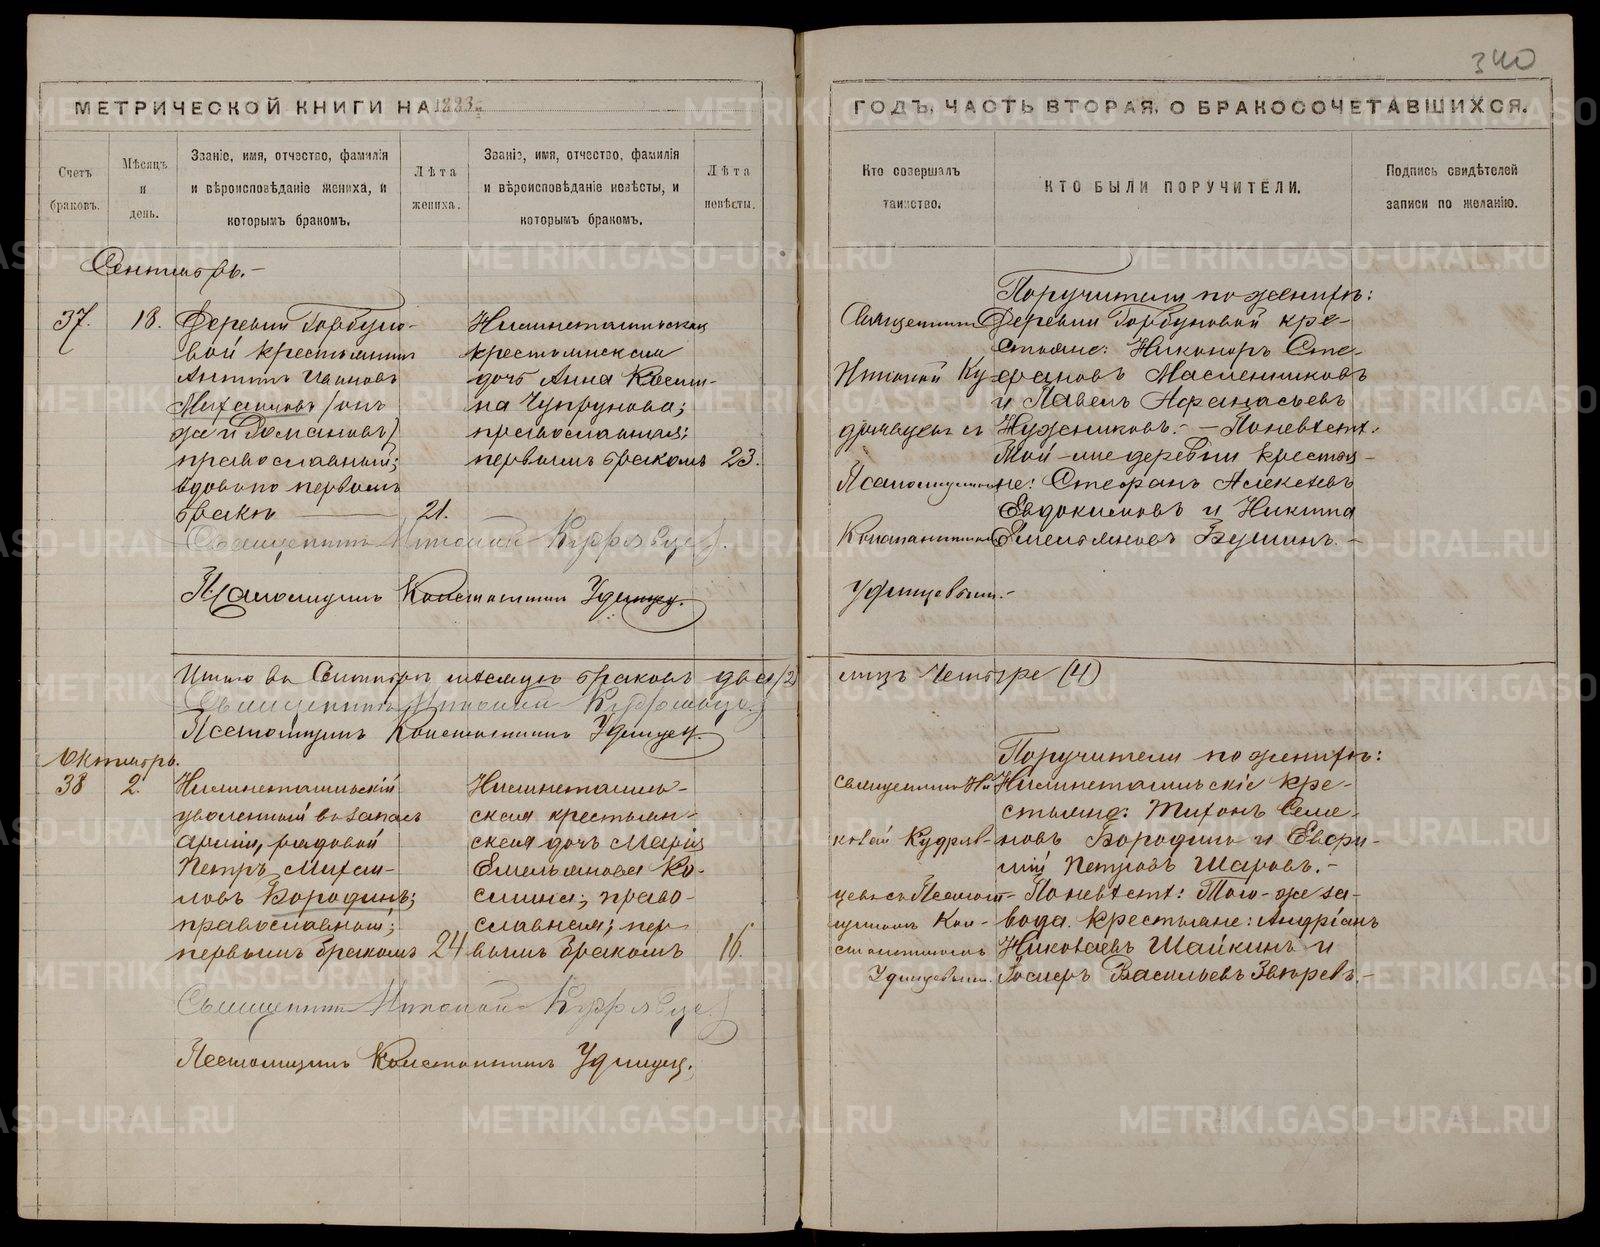 340
МЕТРИЧЕСКОЙ КНИГИ НА 1883 ГОДЪ, ЧАСТЬ ВТОРАЯ, О БРАКОСОЧЕТАВШИХСЯ.
Счетъ браковъ.
Мѣсяцъ и день.
Званіе, имя, отчество, фамилія и вѣроисповѣданіе жениха, и которымъ бракомъ.
Лѣта жениха.
Званіе, имя, отчество, фамилія и вѣроисповѣданіе невѣсты, и которымъ бракомъ.
Лѣта невѣсты.
Кто совершалъ таинство.
КТО БЫЛИ ПОРУЧИТЕЛИ.
Подпись свидѣтелей записи по желанію.
Сентябрь.-
37.
18.
Деревни Горбуно-
вой крестьянинъ
Антипъ Ивановъ
Михайловъ /онъ
же и Романовъ/
православный;
вдовъ по первомъ
бракѣ
21.
Нижнетагильская
крестьянская
дочь Анна Косьми-
на Чупрунова;
православная;
первымъ бракомъ
23.
Священникъ
Николай Ку-
дрявцевъ съ
Псаломщикомъ
Константиномъ
Удинцевымъ.-
Поручители по женихѣ:
Деревни Горбуновой кре-
стьяне: Никаноръ Сте-
фановъ Масленниковъ
и Павелъ Афанасьевъ
Нужниковъ.- Поневѣстѣ:
Той-же деревни крестья-
не: Стефанъ Алексѣевъ
Евдокимовъ и Никита
Емельяновъ Бушинъ.-
Священникъ Николай Кудрявцевъ.
Псаломщикъ Константинъ Удинцев.
Итого въ Сентябрѣ мѣсяцѣ браковъ два (2)
лицъ Четыре (4)
Священникъ Николай Кудрявцевъ
Псаломщикъ Константинъ Удинцев.
Октябрь.
38
2.
Нижнетагильскій
уволенный въ запасъ
арміи, рядовой
Петръ Михай-
ловъ Бородинъ;
православный;
первымъ бракомъ
24
Нижнетагиль-
ская крестьян-
ская дочь Марія
Емельянова Ко-
сьмина; право-
славная; пер-
вымъ бракомъ
16.
Священникъ Ни-
колай Кудряв-
цевъ съ Псалом-
щикомъ Кон-
стантиномъ
Удинцевымъ.
Поручители по женихѣ:
Нижнетагильскіе кре-
стьяне: Тихонъ Семе-
новъ Бородинъ и Евфи-
мій Петровъ Шаровъ.-
Поневѣстѣ: Того-же за-
вода крестьяне: Андріанъ
Николаевъ Шайкинъ и
Васильевъ Звѣревъ.-
Священникъ Николай Кудрявцевъ
Псаломщикъ Константинъ Удинцев.
METRIKI.GASO-URAL.RU